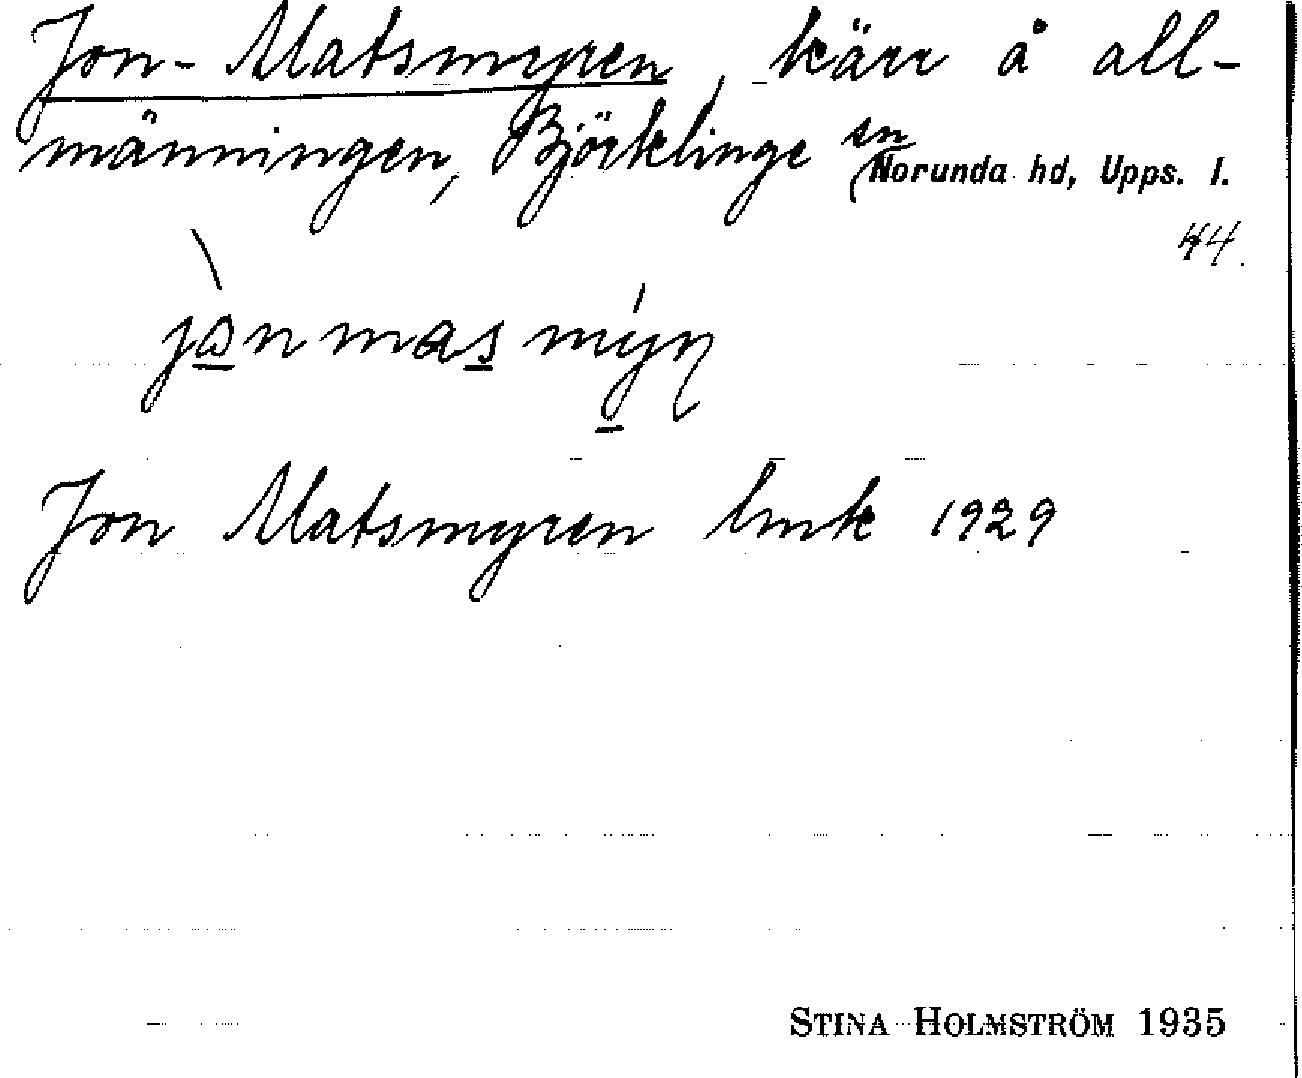 Jon-Matsmyren, kärr å all-
männingen, Björklinge sn
Norunda hd, Upps. l.
44.
Jon Matsmyren lmk 1929
STINA HOLMSTRÖM 1935